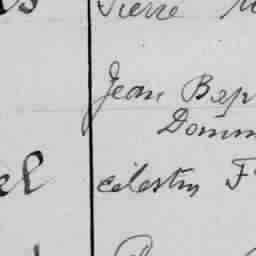 Pierre
Jean Bap
Domin
el celestin F